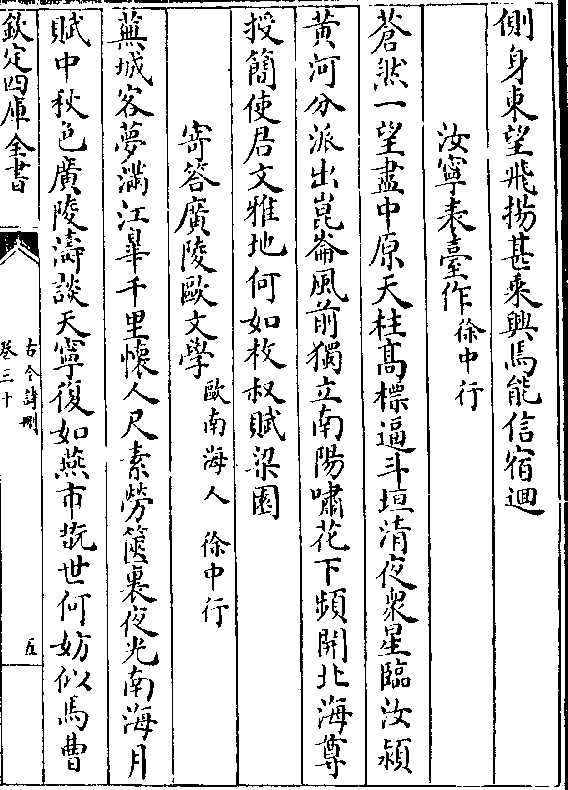 側身東望飛揚甚乘興馬能信宿迴
汝寧表臺作 徐中行
蒼然一望盡中原天柱髙標逼斗垣清夜衆星臨汝潁
黄河分派出崑崙風前獨立南陽嘯花下頻開北海尊
授簡使君文雅地何如枚叔賦梁園
寄答廣陵歐文學 歐南海人 徐中行
蕪城客夢滿江臯千里懐人尺素勞篋裏夜光南海月
賦中秋色廣陵濤談天寧復如燕市翫世何妨似馬曹
欽定四庫全書
古今詩刪
卷三十
五